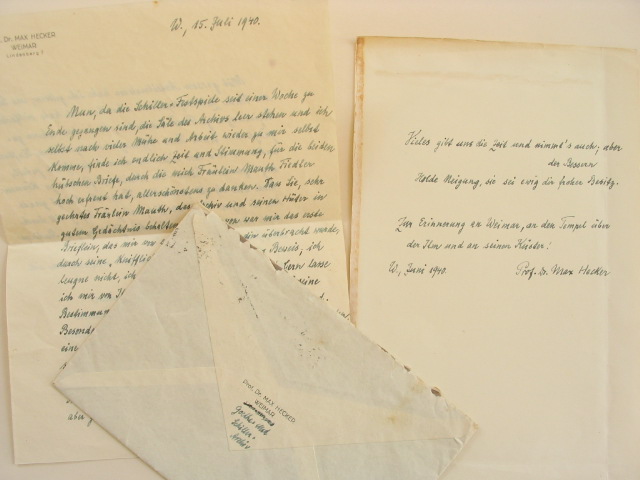 Prof. Dr. MAX HECKER
WEIMAR
Lindenberg
W., 15. Juli 1940.
Nun, da die Schiller-Festspiele seit einer Woche zu
Ende gegangen sind, die Säle des Archivs leer stehen und ich
selbst nach vieler Mühe und Arbeit wieder zu mir selbst
komme, finde ich endlich Zeit und Stimmung, für die beiden
hübschen Briefe, durch die mich Fräulein Mauth Fiedler
hoch erfreut hat, allerschönstens zu danken. Dass Sie, sehr
geehrtes Fräulein Mauth, das Archiv und seinen Hüter in
gutem Gedächtnis behalten war mir das erste
Brieflein, das mir von überbracht wurde,
durch seine Beweis, ich
leugne nicht, ich Gern lasse
ich mir von eine
Bestimmung
Besond
eine
aber
Prof. Dr. MAX HECKER
WEIMAR
Goethe- und
Schiller-
Archiv
Vieles gibt uns die Zeit und nimmt's auch; aber
der Bessern
Holde Neigung, sie sei ewig dir froher Besitz.
Zur Erinnerung an Weimar, an den Tempel über
der Ilm und an seinen Küster!
W., Juni 1940. Prof. Dr. Max Hecker